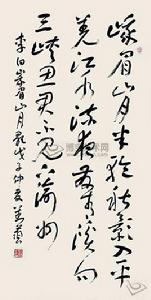 峨眉山月半輪秋影入平
羌江水流夜發清溪向
三峽思君不見下渝州
李白峨眉山月歌戊子仲夏